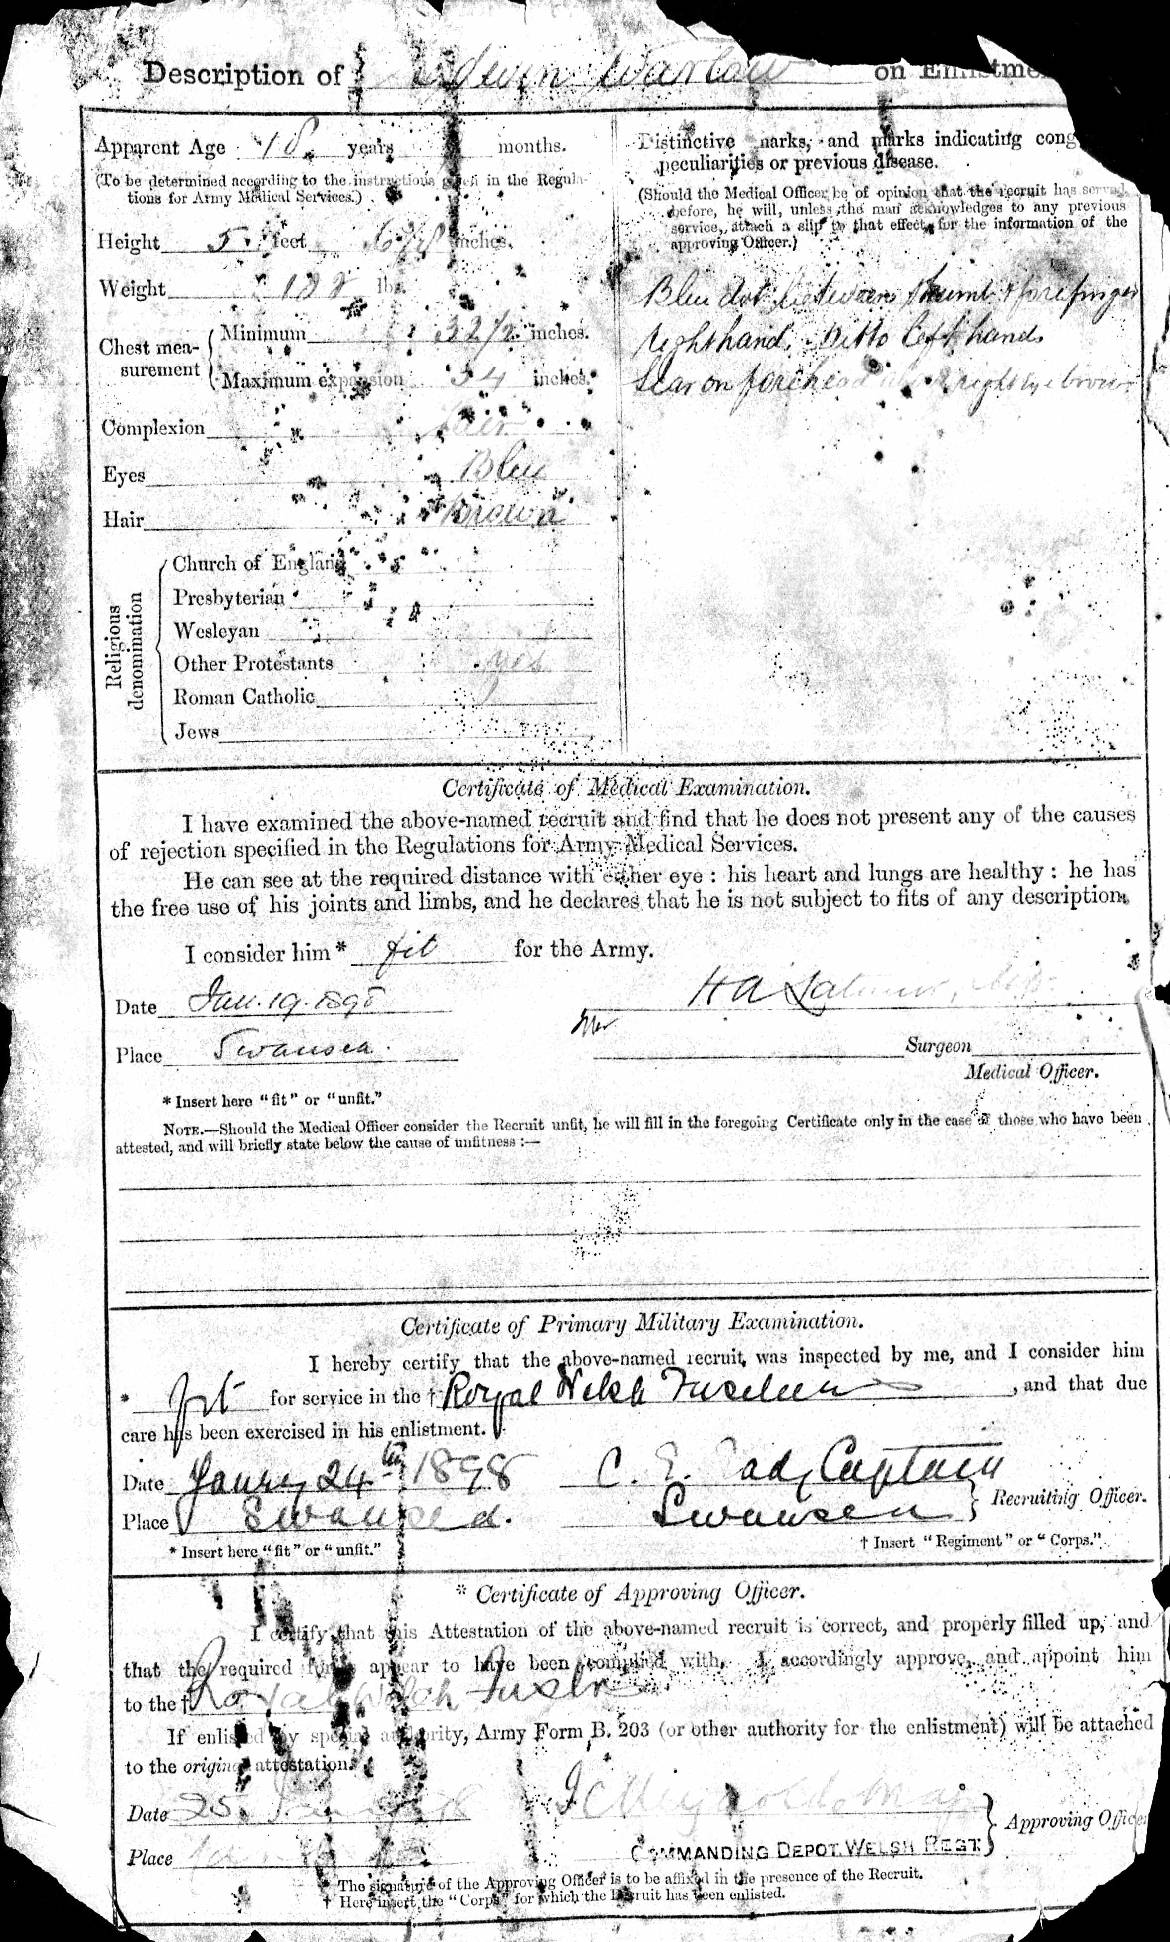 Description of Edwin Warlow on Enlistme
Apparent Age 18 years months.
(To be determined according to the instructions given in the Regula-
tions for Army Medical Services.)
Height 5 feet inches.
Weight lbs.
Chest mea-
surement
Minimum 32½ inches.
Maximum expansion 34 inches.
Complexion Fair
Eyes Blue
Hair Brown
Religious
denomination
Church of England
Presbyterian
Wesleyan
Other Protestants yes
Roman Catholic
Jews
Distinctive marks, and marks indicating cong
peculiarities or previous disease.
(Should the Medical Officer be of opinion that the recruit has served
before, he will, unless the man acknowledges to any previous
service, attach a slip to that effect, for the information of the
approving Officer.)
Blue dot between thumb & forefinger
right hand. Ditto left hand
Scar on forehead right eyebrow
Certificate of Medical Examination.
I have examined the above-named recruit and find that he does not present any of the causes
of rejection specified in the Regulations for Army Medical Services.
He can see at the required distance with either eye : his heart and lungs are healthy : he has
the free use of his joints and limbs, and he declares that he is not subject to fits of any description.
I consider him * fit for the Army.
Date Jan. 19. 1898
H A
Place Swansea.
Surgeon
Medical Officer.
* Insert here "fit" or "unfit."
NOTE.—Should the Medical Officer consider the Recruit unfit, he will fill in the foregoing Certificate only in the case of those who have been
attested, and will briefly state below the cause of unfitness :—
Certificate of Primary Military Examination.
I hereby certify that the above-named recruit was inspected by me, and I consider him
* fit for service in the † Royal Welsh Fusiliers , and that due
care has been exercised in his enlistment.
Date Janry 24th 1898 C. E. Captain
Place Swansea. Swansea Recruiting Officer.
* Insert here "fit" or "unfit."
† Insert "Regiment" or "Corps."
* Certificate of Approving Officer.
I certify that this Attestation of the above-named recruit is correct, and properly filled up, and
that the required forms appear to have been complied with. I accordingly approve, and appoint him
to the † Royal Welsh Fuslrs
If enlisted by special authority, Army Form B. 203 (or other authority for the enlistment) will be attached
to the original attestation.
Date 25 Reynolds Maj
Approving Office
COMMANDING DEPOT. WELSH REGT.
Place
* The signature of the Approving Officer is to be affixed in the presence of the Recruit.
† Here insert the "Corps" for which the Recruit has been enlisted.